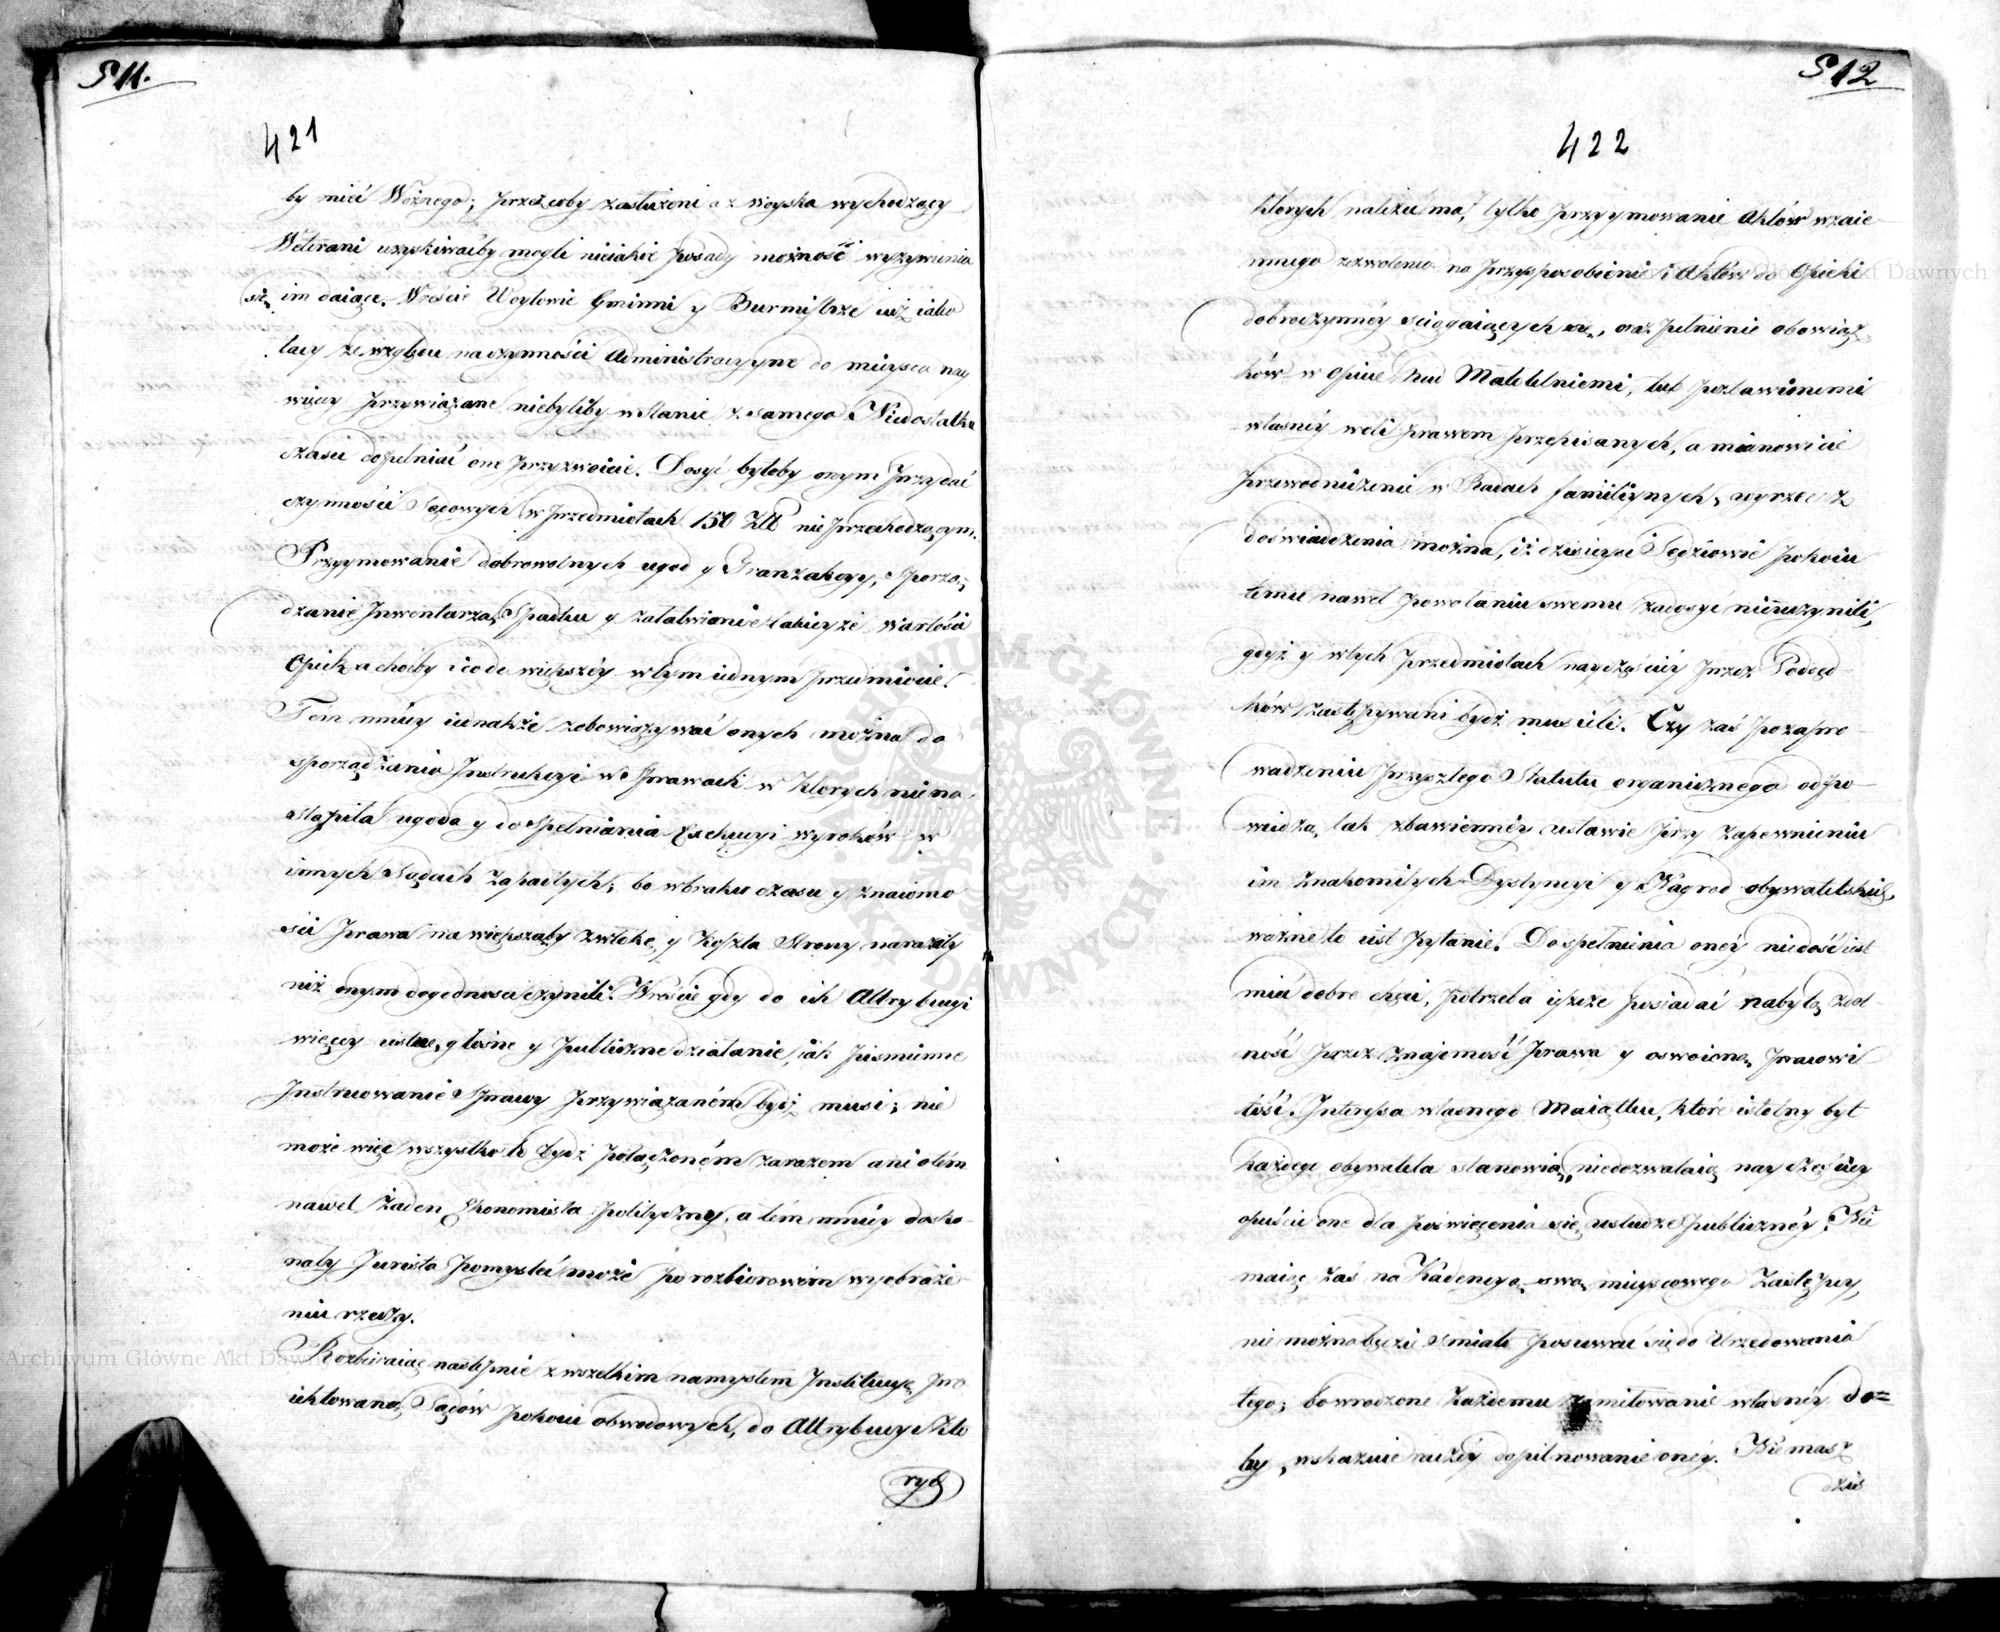 511.
421
by mieć Woźnego; przezcoby zasłużeni a z woyska wychodzący
Weterani uzyskiwaćby mogli nieiakie posady możność wyzywienia
się im daiące. Wreście Woytowie Gminni y Burmistrze iuż iako
tacy ze względu na czynności Administracyyne do mieysca nay
więcey przywiązane, niebyliby w stanie z samego Niedostatku
czasu dopełniać one przyzwoicie. Dosyć byłoby onym przydać
czynności Sądowych w przedmiotach 150 Złł nieprzechodzącym.
Przyymowanie dobrowolnych ugod y Tranzakcyy, sporzą-
dzanie Inwentarza Spadku y załatwianie takieyże wartości
Opiek a choćby i co do większéy w tym iednym przedmiocie.
Tem mniey iednakże zobowiązywać onych można do
sporządzania Instrukcyi w sprawach w których nie na-
stąpiła ugoda y do spełniania Exekucyi wyroków w
innych Sądach zapadłych; bo w braku czasu y znaiomo
ści prawa na większąby zwłokę y koszta Strony naraziły
niż onym dogodności czynili. Wreście gdy do ich Attrybucyi
więcey ustne, głośne y publiczne działanie, iak piśmienne
Instruowanie Sprawy przywiązaném bydź musi; nie
może więc wszystko to bydź połączoném zarazem ani o tém
nawet żaden Ekonomista polityczny, a tém mniey dosko-
nały Jurista pomyśleć może po rozbiorowém wyobraże-
niu rzeczy.
Rozbieraiąc następnie z wszelkim namysłem Instytucyą pro
iektowaną Sądów pokoiu obwodowych, do Attrybucyi Któ
rych
512
422
których należeć ma, tylko przyymowanie Aktów wzaie-
mnego zezwolenia na przysposobienie i Aktów do Opieki
dobroczynnéy ściągaiących się, oraz pełnienie obowiąz-
ków w opiece nad Małoletniemi, lub pozbawionemi
własnéy woli prawem przepisanych, a mianowicie
przewodniczenie w Radach familiynych, wyrzec z
doświadczenia można, iż dzisieysi Sędziowie pokoiu
temu nawet powołaniu swemu zadosyć nieuczynili,
gdyż y w tych przedmiotach nayczęściéy przez Podsęd-
ków zastępywani bydź musieli. Czy zaś po zapro-
wadzeniu przyszłego Statutu organicznego odpo-
wiedzą tak zbawiennéy ustawie przy zapewnieniu
im znakomitych Dystyncyi y Nagrod obywatelskich,
ważne to iest pytanie. Do spełnienia onéy niedość iest
mieć dobre chęci, potrzeba ieszcze posiadać nabytą zdol-
ność przez znajomość prawa y oswoioną pracowi-
tość. Interessa własnego Maiątku, które istotny byt
każdego obywatela stanowią, niedozwalaią nayczęściey
opuścić one dla poświęcenia się usłudze publicznéy. Nie
maiąc zaś na Kadencyą swą mieyscowego Zastępcy,
nie można będzie śmiało posuwać się do Urzędowania
tego; bo wrodzone każdemu zamiłowanie własnéy do=
by, wskazuie raczéy dopilnowanie onéy. Nie masz
dziś